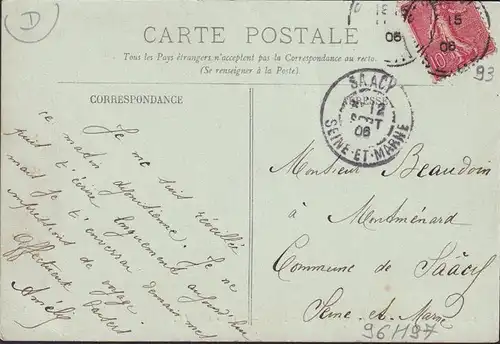 D
CARTE POSTALE
Tous les Pays étrangers n'acceptent pas la Correspondance au recto.
(Se renseigner à la Poste)
CORRESPONDANCE
Je me suis réveillée
ce matin dijonnaise. Je ne
puis t'écrire longuement aujourd'hui
mais je t'enverrai demain mes
impressions de voyage.
Affectueux baisers
Amélie
15
06
10
93
SAACY
12
SEPT
06
SEINE-ET-MARNE
Monsieur Beaudoin
à Montménard
Commune de Saâcy
Seine-et-Marne
96H97